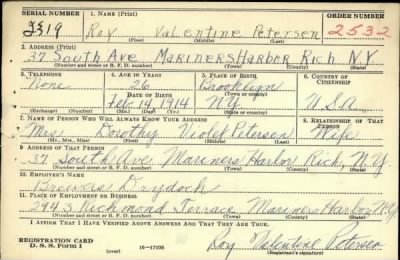 SERIAL NUMBER 1. NAME (Print) ORDER NUMBER
Roy Valentine Petersen 2532
(First) (Middle) (Last)
2. ADDRESS (Print)
37 South Ave Mariners Harbor Rich N.Y.
(Number and street or R. F. D. number) (Town) (County) (State)
3. TELEPHONE 4. AGE IN YEARS 5. PLACE OF BIRTH 6. COUNTRY OF CITIZENSHIP
None 26 Brooklyn
DATE OF BIRTH (Town or county)
Feb. 14, 1914 N.Y. U.S.A
(Exchange) (Number) (Mo.) (Day) (Yr.) (State or country)
7. NAME OF PERSON WHO WILL ALWAYS KNOW YOUR ADDRESS 8. RELATIONSHIP OF THAT PERSON
Mrs Dorothy Violet Petersen Wife
(Mr., Mrs., Miss) (First) (Middle) (Last)
9. ADDRESS OF THAT PERSON
37 South Ave Mariners Harbor Rich, N.Y
(Number and street or R. F. D. number) (Town) (County) (State)
10. EMPLOYER'S NAME
Brewers Drydock
11. PLACE OF EMPLOYMENT OR BUSINESS
Richmond Terrace Mariners Harbor N.Y.
(Number and street or R. F. D. number) (Town) (County) (State)
I AFFIRM THAT I HAVE VERIFIED ABOVE ANSWERS AND THAT THEY ARE TRUE.
REGISTRATION CARD
D. S. S. Form 1 (over) Roy Valentine Petersen
(Registrant's signature)